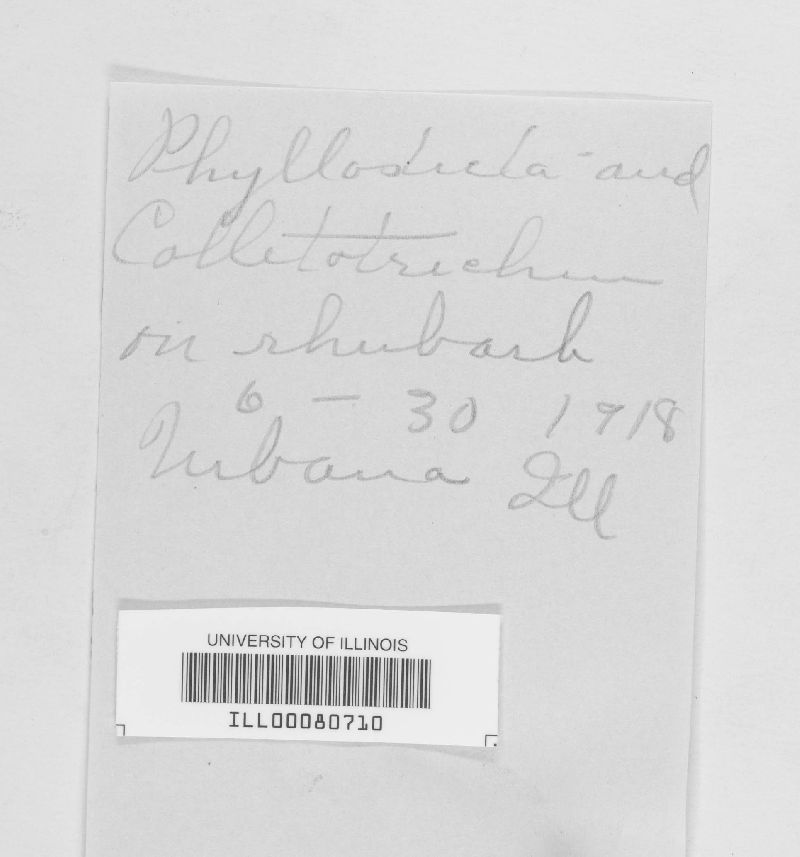 Phyllosticta - and
Colletotrichum
on rhubarb
6 - 30 1918
Urbana Ill
UNIVERSITY OF ILLINOIS
ILL00080710